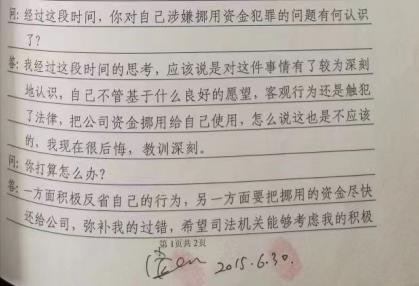 问：经过这段时间，你对自己涉嫌挪用资金犯罪的问题有何认识
了？
答：我经过这段时间的思考，应该说是对这件事情有了较为深刻
地认识，自己不管基于什么良好的愿望，客观行为还是触犯
了法律，把公司资金挪用给自己使用，怎么说这也是不应该
的，我现在很后悔，教训深刻。
问：你打算怎么办？
答：一方面积极反省自己的行为，另一方面要把挪用的资金尽快
还给公司，弥补我的过错，希望司法机关能够考虑我的积极
第1页共2页
2015.6.30.